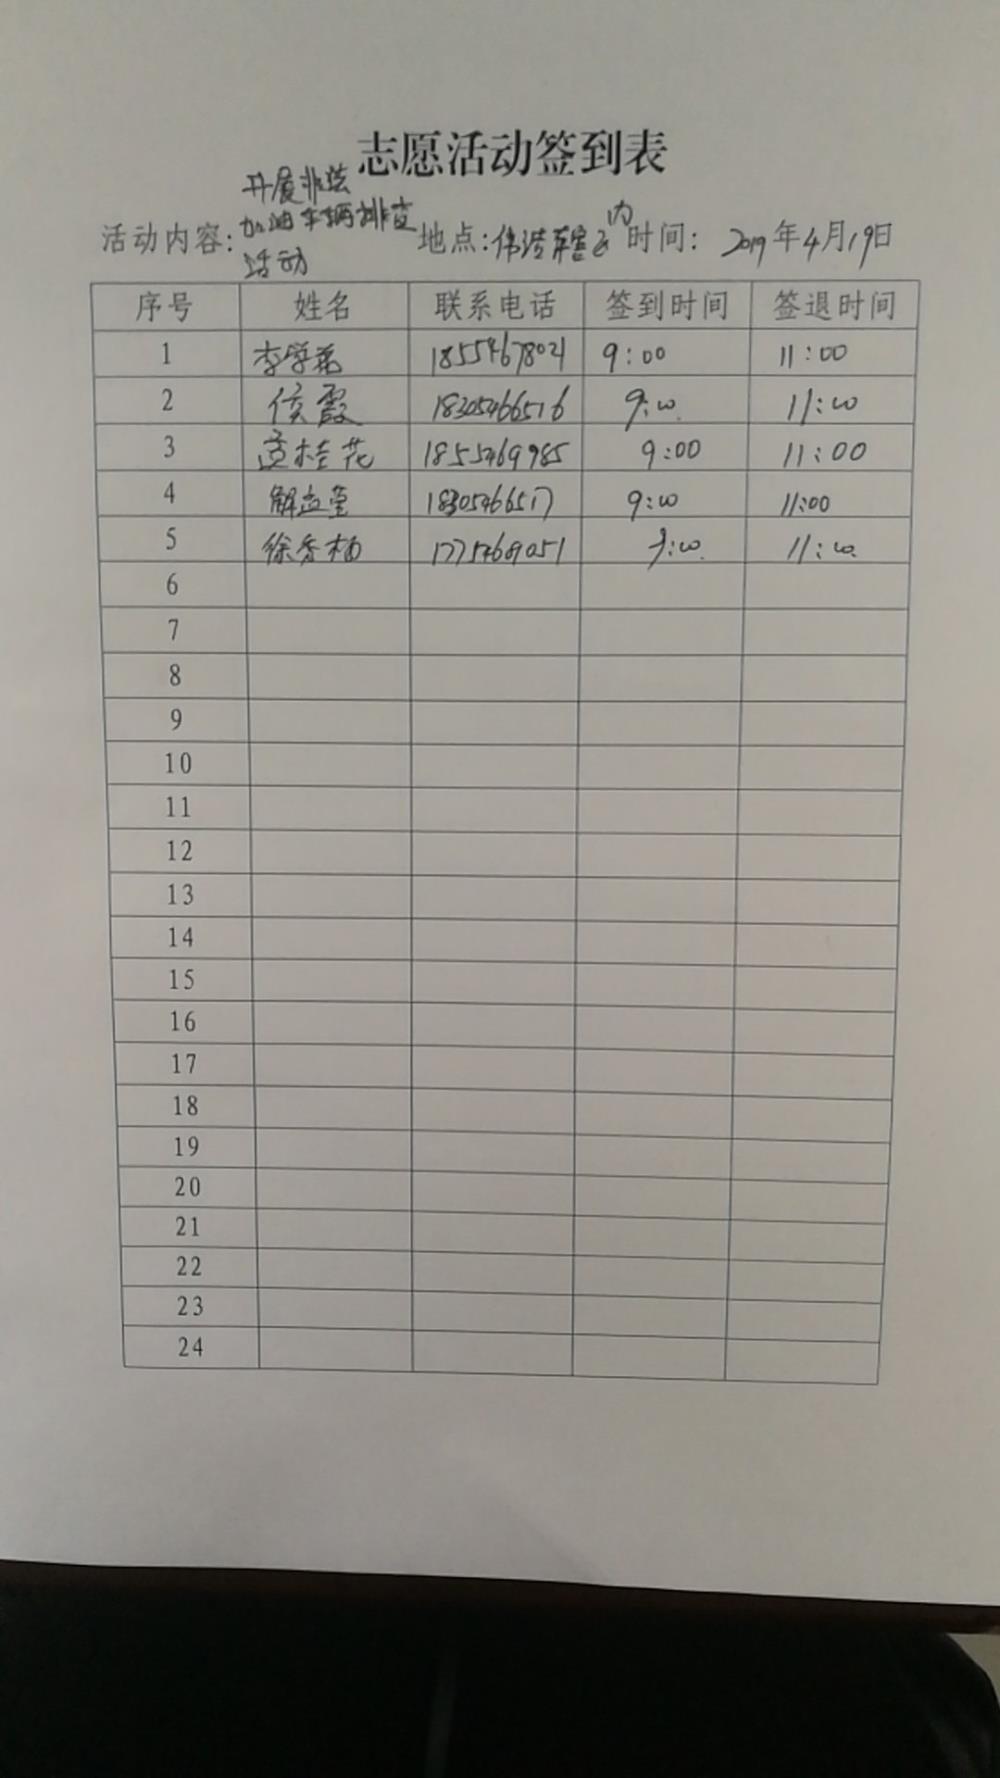 志愿活动签到表
活动内容: 开展非法加油车辆排查活动 地点: 伟浩辖区内 时间: 2019年4月19日
序号 姓名 联系电话 签到时间 签退时间
1 李学花 9:00 11:00
2 侯霞 18305466516 9:00 11:00
3 孟桂花 1855469985 9:00 11:00
4 解孟莹 18305466517 9:00 11:00
5 徐秀梅 9:00 11:00
6
7
8
9
10
11
12
13
14
15
16
17
18
19
20
21
22
23
24